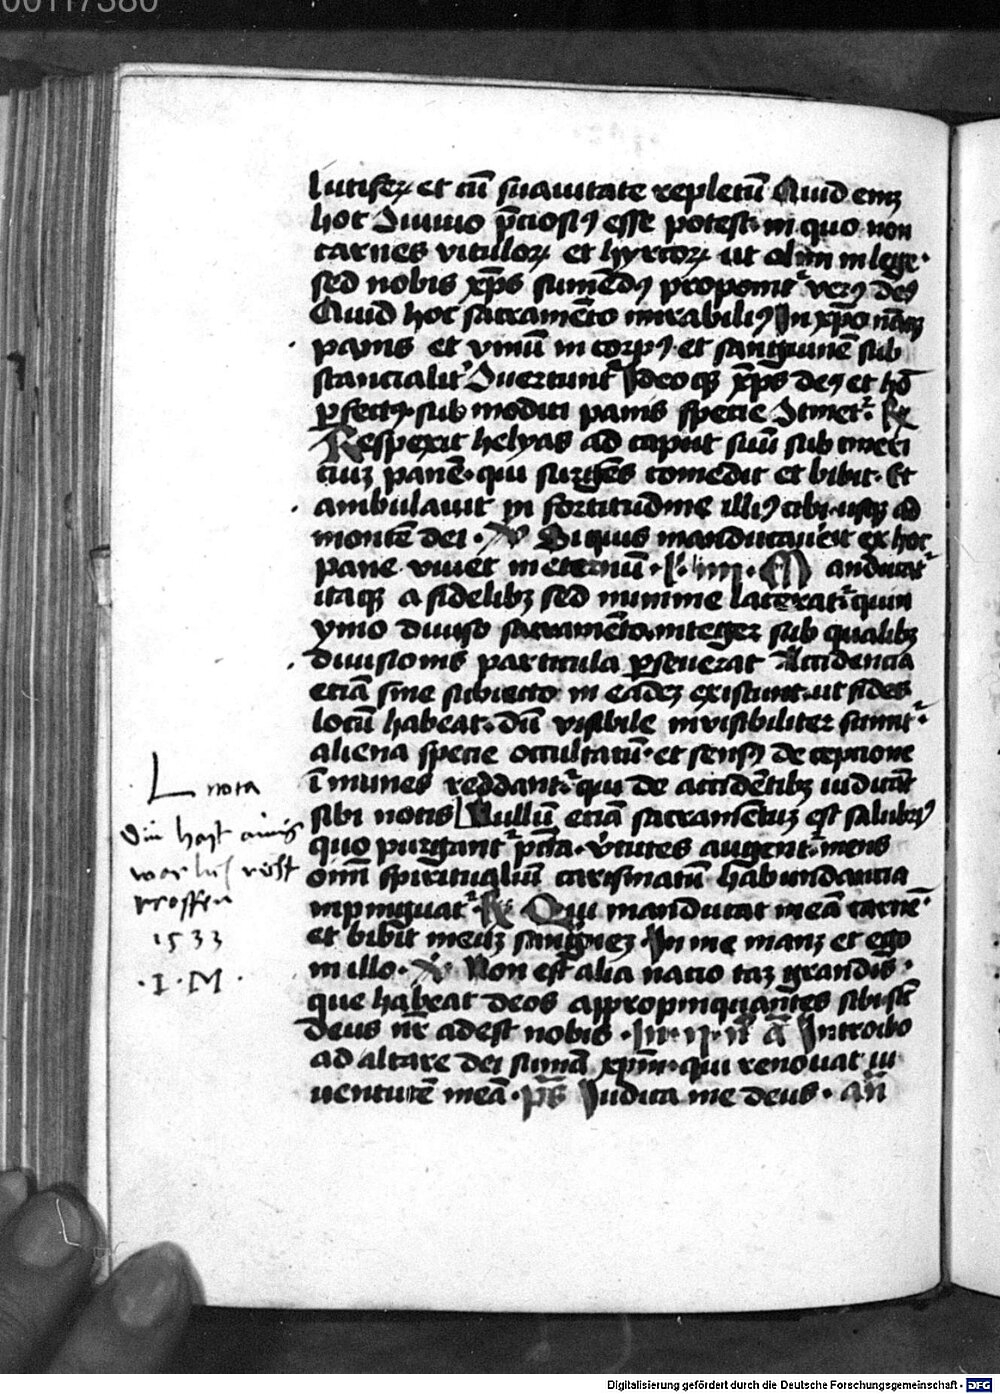 00117380
lutifeꝝ et cū suauitate repletū Quid enī
hoc ꝯuiuio p̄ciosiꝰ esse potest in quo non
carnes vituloꝝ et hyrcoꝝ ut olim in lege·
sed nobis xp̄s sumēdꝰ proponit᷑ verꝰ deꝰ
Quid hoc sacramēto mirabiliꝰ In xp̄o nāqꝫ
panis et vinū in corpꝰ et sanguinē sub
stancialit᷑ ꝯuertunt᷑ Ideoqꝫ xp̄s deꝰ et hō
ꝑfectꝰ sub modici panis specie ꝯtinet᷑. R̄
Respexit helyas ad caput suū sub cineri
ciuꝫ panē· qui surgēs comedit et bibit· Et
ambulauit in fortitudine illiꝰ cibi usqꝫ ad
montē dei · V̄ Si quis manducauerit ex hoc
pane viuet in eternū · l· iiij · Manducat᷑
itaqꝫ a fidelibꝫ sed minime laterat᷑ quin
ymo diuiso sacramēto integer sub qualibꝫ
diuisionis particula ꝑseuerat Accidencia
eciā sine subiecto in eadeꝫ existunt· ut fides
locū habeat· dū visibile invisibiliter sumit᷑·
aliena specie occultatū· et sensꝰ de cepcione
ī munes reddant᷑· qui de accidētibꝫ iudicāt
sibi notis Nullū eciā sacramētuꝫ est salubriꝰ
quo purgant᷑ pc̄ta· v̄tutes augent᷑· mens
oīm spiritualiū carismatū habundancia
inpinguat᷑· R̄ Qui manducat meā carnē·
et bibit meuꝫ sanguineꝫ In me manꝫ et ego
in illo· V̄ Non est alia nacio taꝫ grandis·
que habeat deos appropinquātes sibi· sic̄
deus nr̄ adest nobis · In· ij· n̄ ā Introibo
ad altare dei sumā xp̄m· qui renouat iu
uentutē meā· p̄s Iudica me deus· an̄
nota
1533
·I·M·
Digitalisierung gefördert durch die Deutsche Forschungsgemeinschaft - DFG